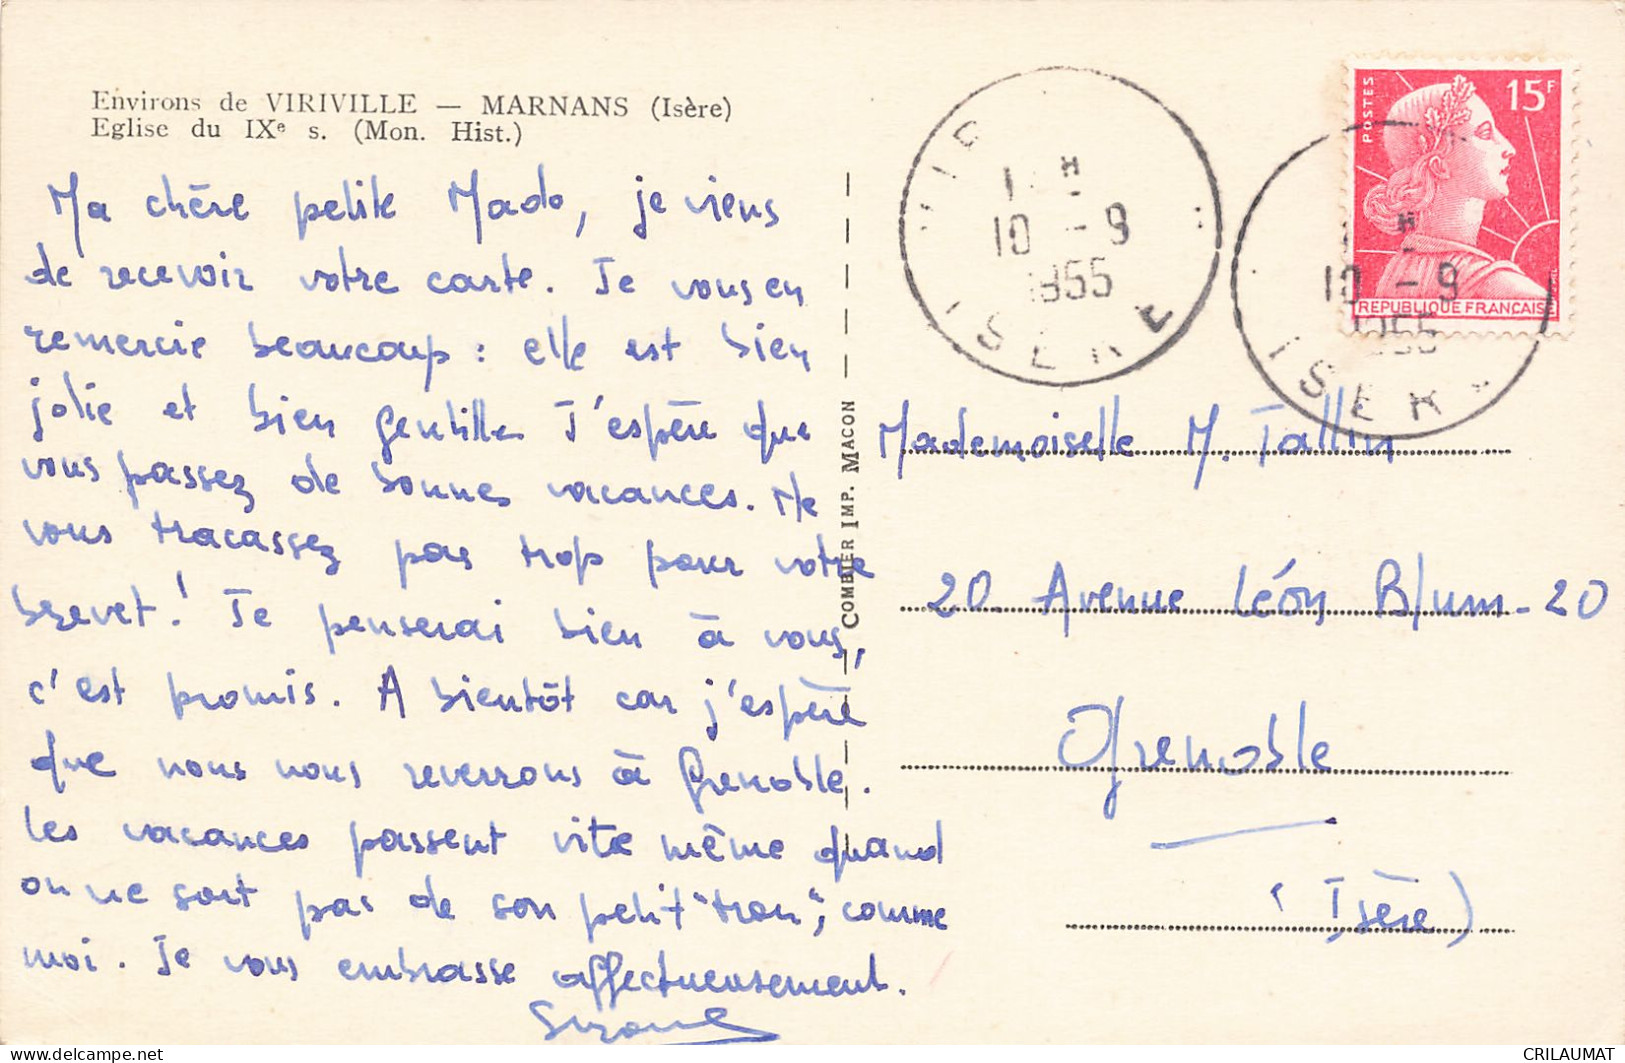 Environs de VIRIVILLE — MARNANS (Isère)
Eglise du IXe s. (Mon. Hist.)
Ma chère petite Mado, je viens
de recevoir votre carte. Je vous en
remercie beaucoup : elle est bien
jolie et bien gentille J'espère que
vous passez de bonnes vacances. Ne
vous tracassez pas trop pour votre
brevet! Je penserai bien à vous,
c'est promis. A bientôt car j'espère
que nous nous reverrons à Grenoble.
Les vacances passent vite même quand
on ne sort pas de son petit "trou", comme
moi. Je vous embrasse affectueusement.
Suzanne
COMBIER IMP. MACON
10 - 9
1955
ISERE
POSTES
15F
REPUBLIQUE FRANÇAISE
10 - 9
1955
ISERE
Mademoiselle M. Tallin
20. Avenue Léon Blum - 20
Grenoble
(Isère)
CRILAUMAT